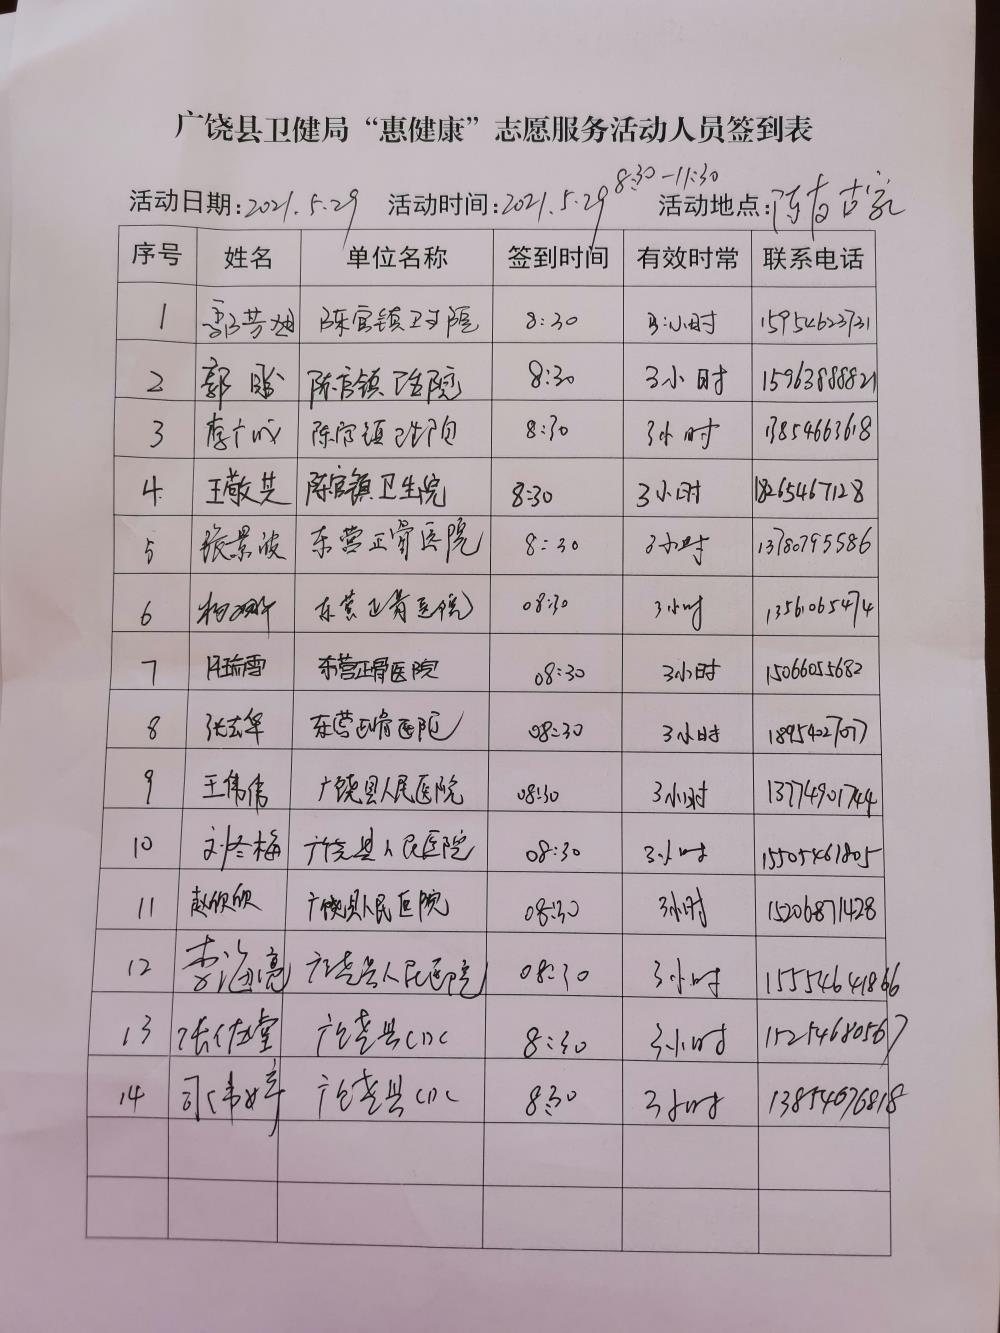 广饶县卫健局“惠健康”志愿服务活动人员签到表
活动日期:2021.5.29 活动时间:2021.5.29 8:30-11:30 活动地点:陈官
序号 姓名 单位名称 签到时间 有效时常 联系电话
1 郭芳 陈官镇卫生院 8:30 3小时 15954623731
2 郭 陈官镇卫生院 8:30 3小时 15963888821
3 李广成 陈官镇卫生院 8:30 3小时 13854663618
4 王敬芝 陈官镇卫生院 8:30 3小时 18265467128
5 张景波 东营正骨医院 8:30 3小时 13780795586
6 杨 东营正骨医院 08:30 3小时 13561065474
7 瑞雪 东营正骨医院 08:30 3小时 15066055682
8 张 东营正骨医院 08:30 3小时 18954027077
9 王伟伟 广饶县人民医院 08:30 3小时 13774901744
10 刘冬梅 广饶县人民医院 08:30 3小时 15505461805
11 赵欣欣 广饶县人民医院 08:30 3小时 15206871428
12 李海亮 广饶县人民医院 08:30 3小时 15554641866
13 张 堂 广饶县CDC 8:30 3小时 15254680567
14 司伟 广饶县CDC 8:30 3小时 13854676818